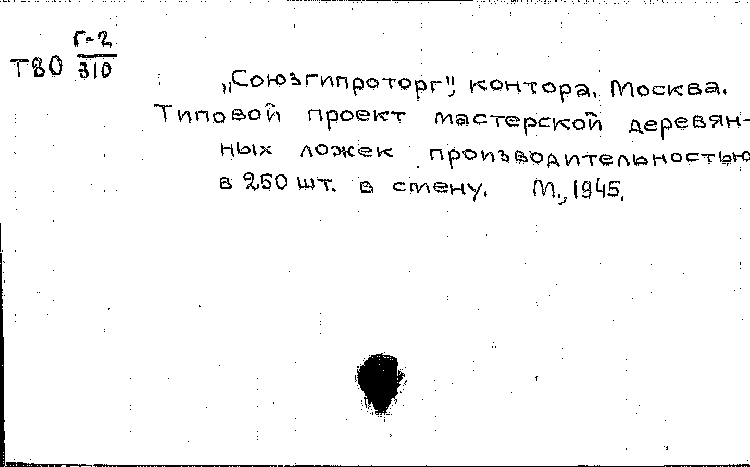 Г-2
Т80 310
„Союзгипроторг", контора. Москва.
Типовой проект мастерской деревян-
ных ложек производительностью
в 250 шт. в смену. М., 1945.